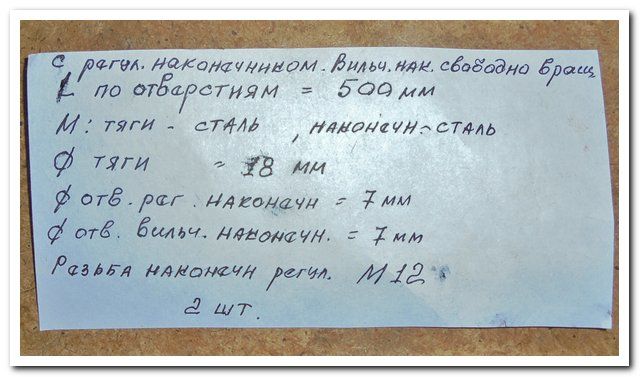 с регул. наконечником. Вильч. нак. свободно вращ
L по отверстиям = 500 мм
М: тяги - сталь, наконечн - сталь
ф тяги = 18 мм
ф отв. рег. наконечн = 7 мм
ф отв. вильч. наконечн. = 7 мм
Резьба наконечн регул. М12
2 шт.